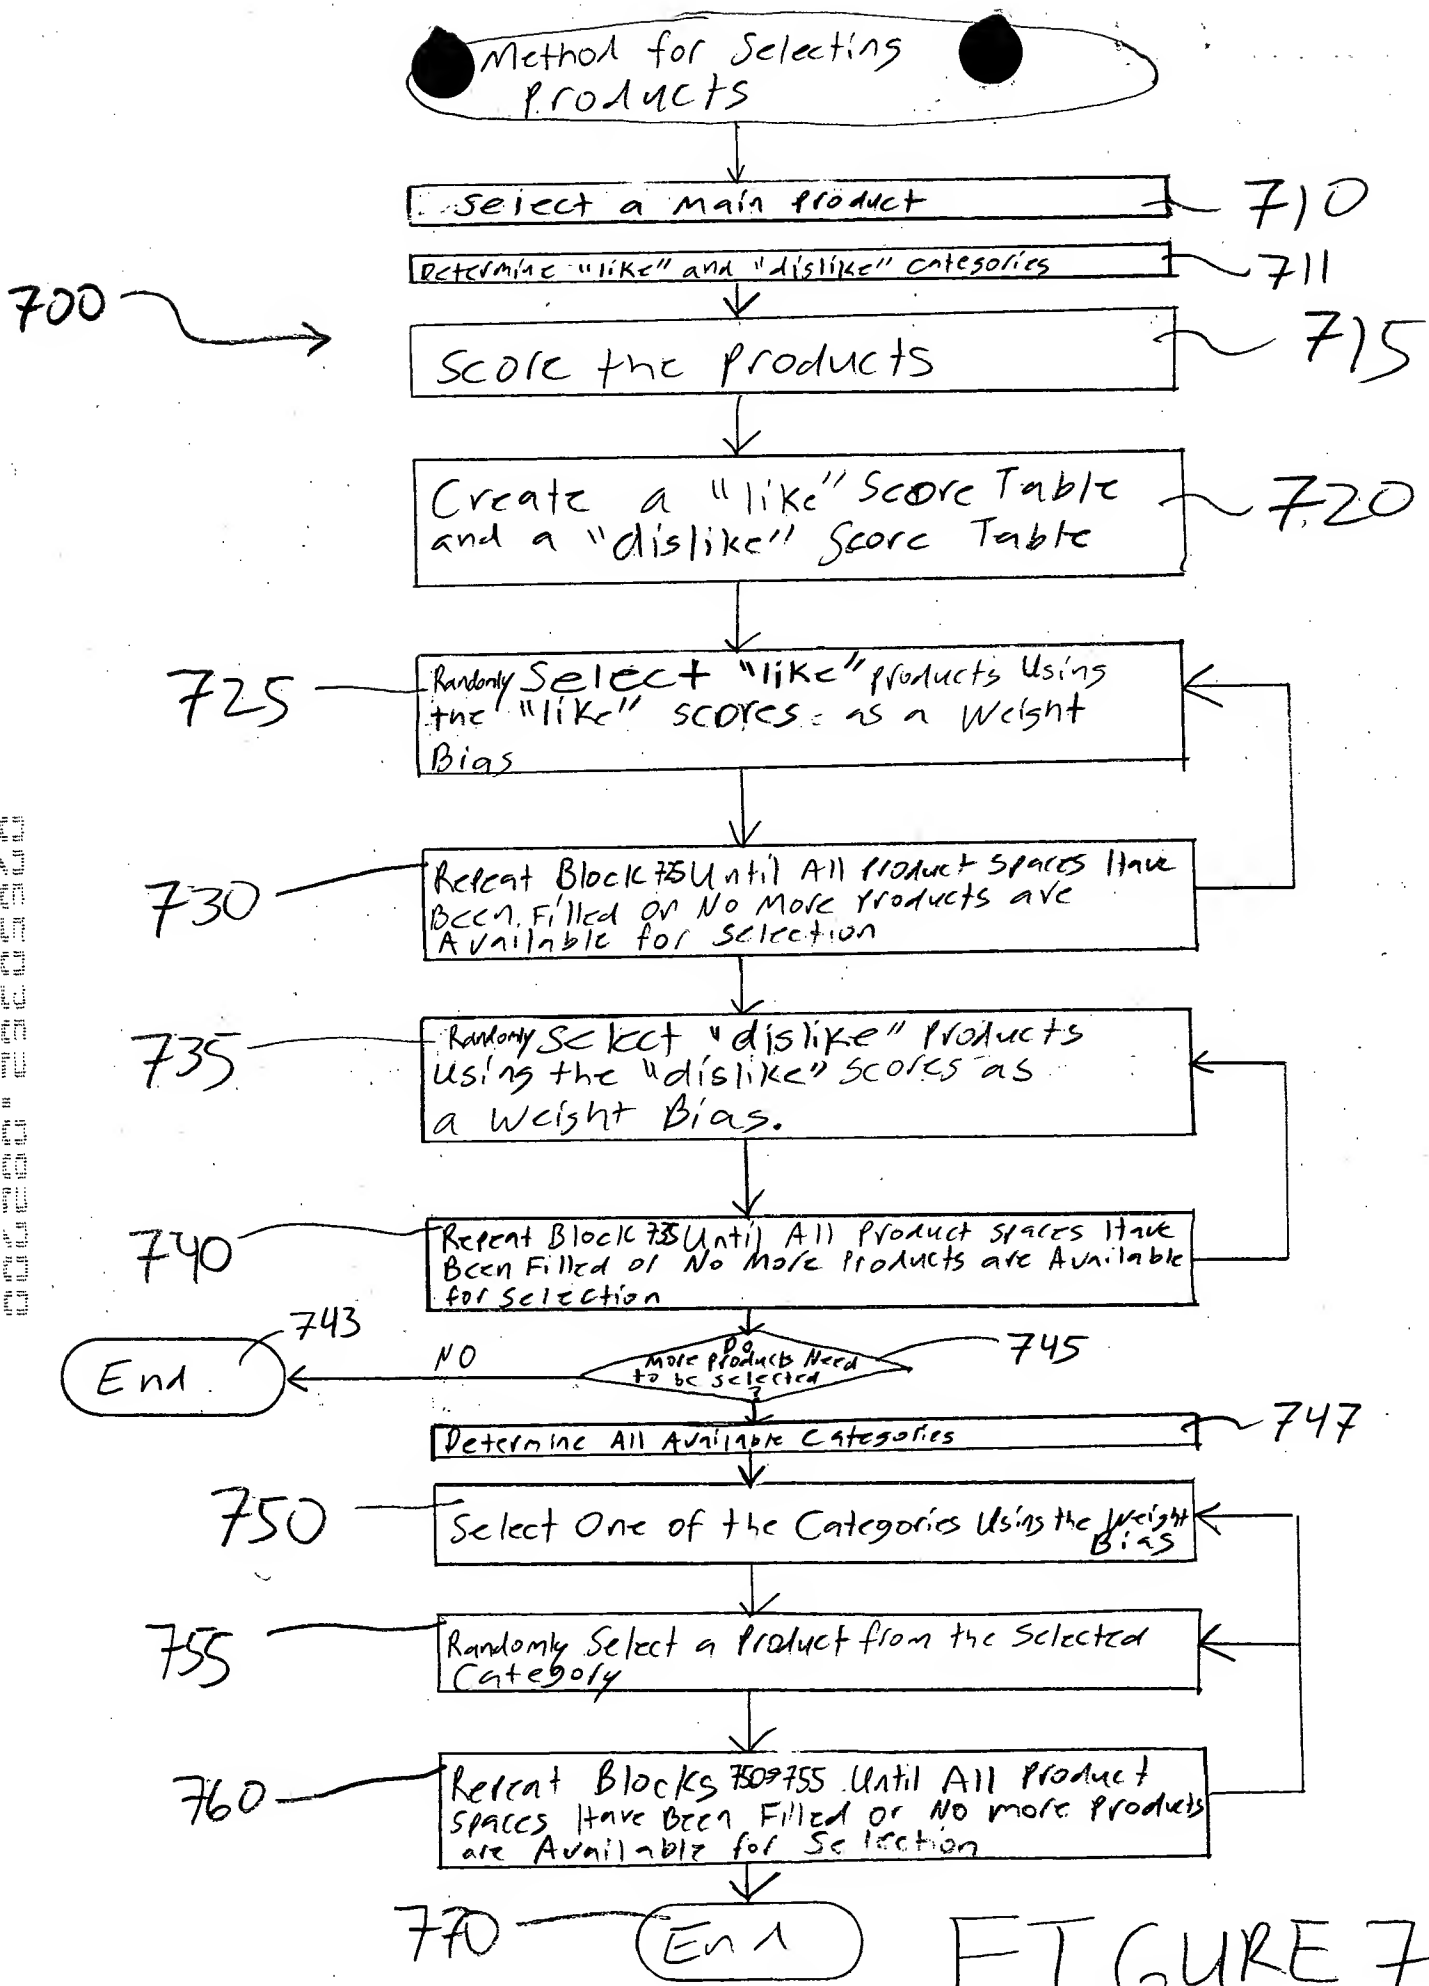 Method for Selecting
Products
Select a Main Product
710
Determine "like" and "dislike" Categories
711
700
Score the Products
715
Create a "like" Score Table
and a "dislike" Score Table
720
725
Randomly Select "like" Products Using
the "like" scores as a Weight
Bias
730
Repeat Block 725 Until All Product Spaces Have
Been Filled or No More Products are
Available for Selection
735
Randomly Select "dislike" Products
Using the "dislike" Scores as
a Weight Bias.
740
Repeat Block 735 Until All Product Spaces Have
Been Filled or No More Products are Available
for Selection
743
End
NO
Do
More Products Need
to be selected
?
745
Determine All Available Categories
747
750
Select One of the Categories Using the Weight
Bias
755
Randomly Select a Product from the Selected
Category
760
Repeat Blocks 750-755 Until All Product
Spaces Have Been Filled or No more Products
are Available for Selection
770
End
FIGURE 7